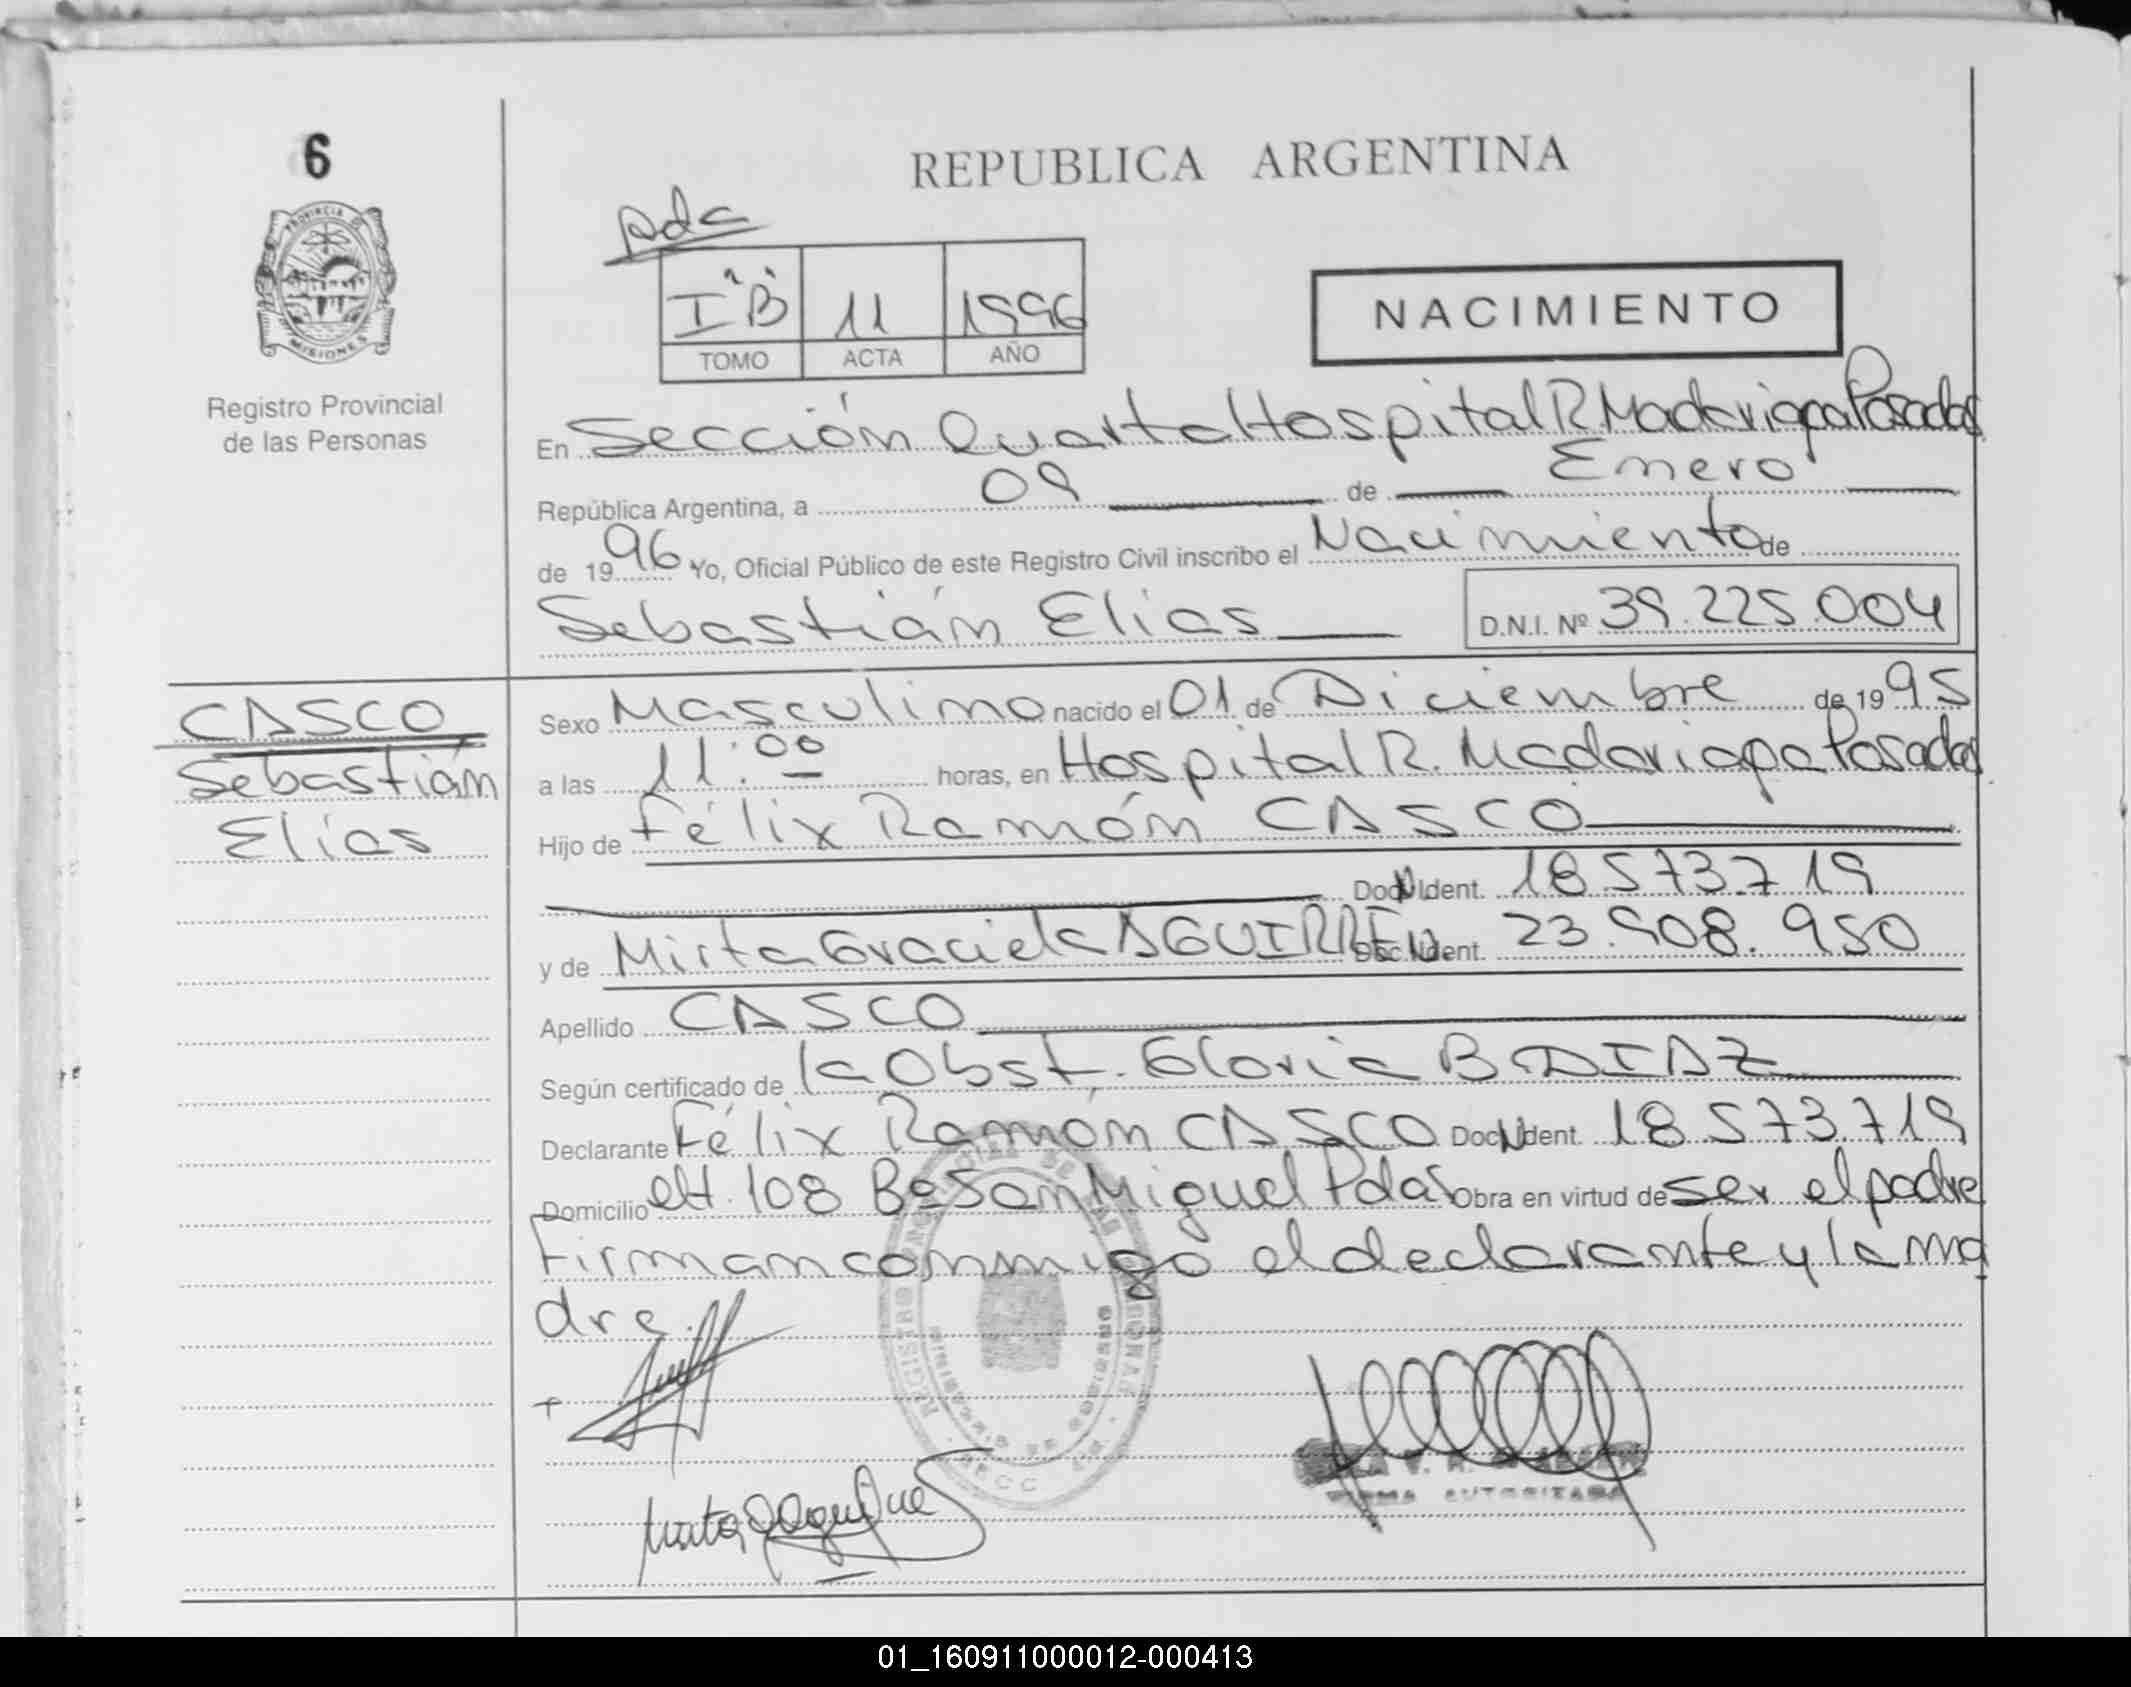 6
REPUBLICA ARGENTINA
Pdas
PROVINCIA DE MISIONES
I "B" 11 1996
TOMO ACTA AÑO
NACIMIENTO
Registro Provincial
de las Personas
En Sección Cuarta Hospital R. Madariaga Posadas
República Argentina, a 09 de Enero
de 1996 Yo, Oficial Público de este Registro Civil inscribo el Nacimiento de
Sebastián Elías D.N.I. Nº 39.225.004
CASCO
Sebastián
Elías
Sexo Masculino nacido el 01 de Diciembre de 1995
a las 11:00 horas, en Hospital R. Madariaga Posadas
Hijo de Félix Ramón CASCO
Doc. Ident. 18.573.719
y de Mirta Graciela AGUIRRE Doc. Ident. 23.908.950
Apellido CASCO
Según certificado de la Obst. Gloria B. DIAZ
Declarante Félix Ramón CASCO Doc. Ident. 18.573.719
Domicilio ch. 108 Bº San Miguel Pdas Obra en virtud de ser el padre
Firman conmigo el declarante y la ma
dre.
FIRMA AUTORIZADA
01_160911000012-000413